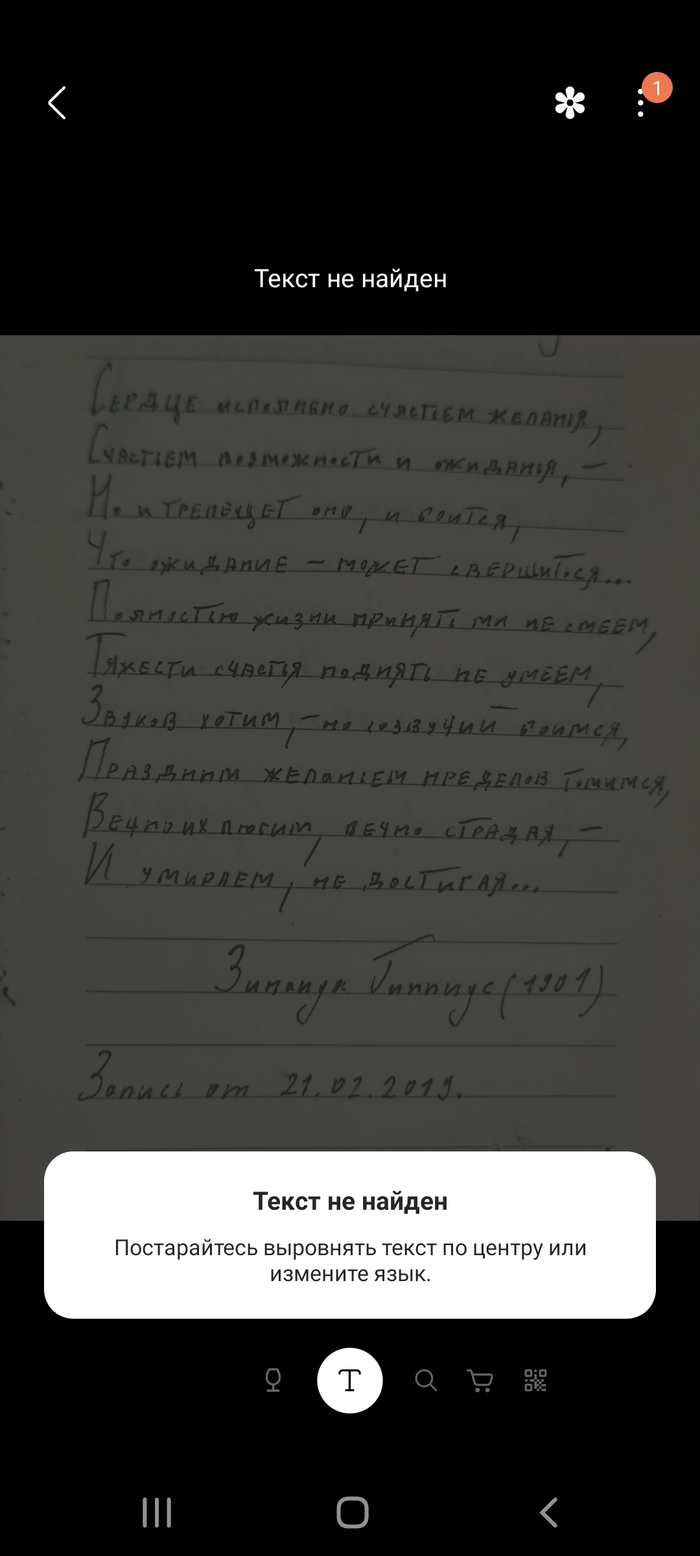 1
Текст не найден
Сердце исполнено счастьем желанія,
Счастьем возможности и ожиданія, –
Но и трепещет оно, и боится,
Что ожидание – может свершиться...
Полностью жизни принять мы не смеем,
Тяжести счастья поднять не умеем,
Звуков хотим, – но созвучий боимся,
Праздным желаньем пределов томимся,
Вечно их любим, вечно страдая, –
И умираем, не достигая...
Зинаида Гиппиус (1901)
Запись от 21.02.2019.
Текст не найден
Постарайтесь выровнять текст по центру или
измените язык.
T